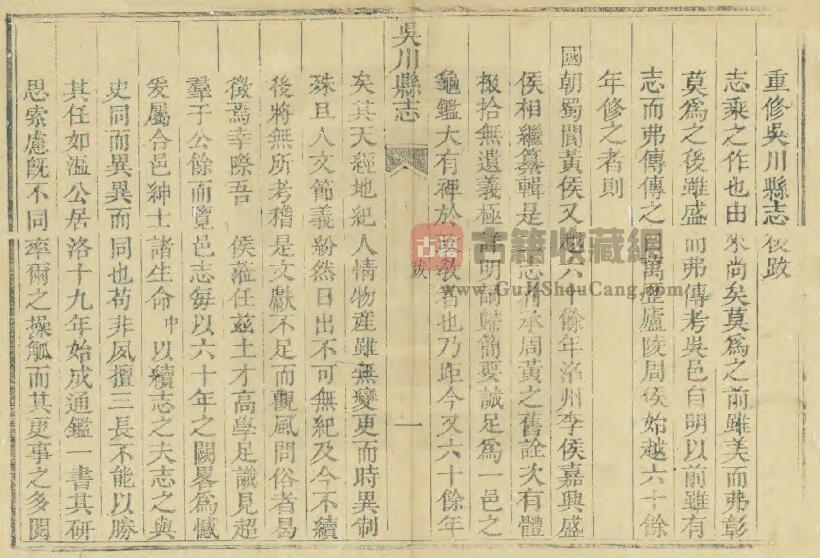 重修吳川縣志後跋
志乘之作也由來尚矣莫爲之前雖美而弗彰
莫爲之後雖盛而弗傳考吳邑自明以前雖有
志而弗傳傳之自萬歷廬陵周侯始越六十餘
年修之者則
國朝蜀閬黃侯又越六十餘年洺州李侯嘉興盛
侯相繼纂輯是志者承周黃之舊詮次有體
掇拾無遺義極 明 歸簡要誠足爲一邑之
龜鑑大有裨於政教者也乃距今又六十餘年
吳川縣志
跋
一
矣其天經地紀人情物產雖無變更而時異制
殊且人文節義紛然日出不可無紀及今不續
後將無所考稽是文獻不足而觀風問俗者曷
徵焉幸際吾 侯蒞任茲土才高學足識見超
羣于公餘而覽邑志每以六十年之闕畧爲憾
爰屬合邑紳士諸生命中以續志之夫志之與
史同而異異而同也苟非夙擅三長不能以勝
其任如溫公居洛十九年始成通鑑一書其研
思索慮旣不同率爾之操觚而其更事之多閱
古籍
古籍收藏網
www.GuJiShouCang.com